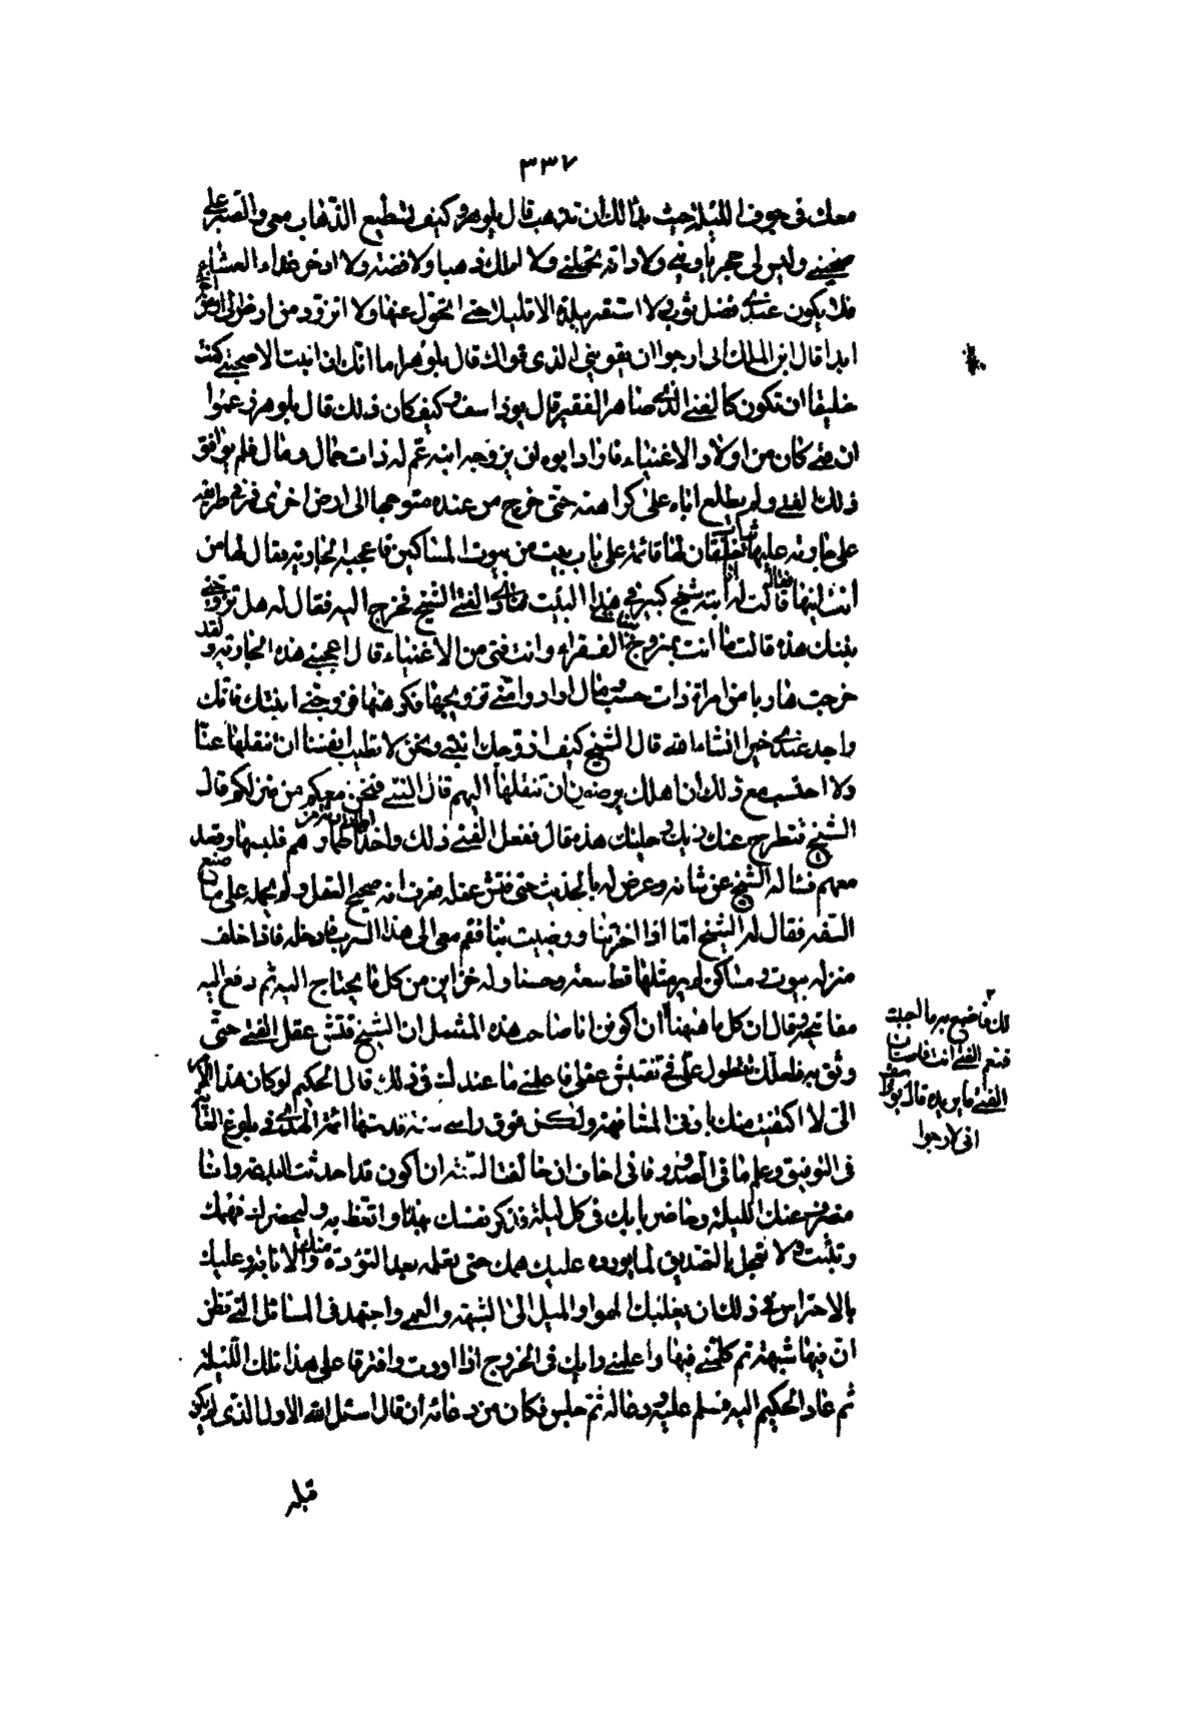 ٣٣٧
معك في جوف الليل حيث بدا لك ان تذهب قال بلوهر وكيف تستطيع الذهاب معي والصبر على
صحبتي وليس لي حجر ياويني ولا دابة تحملني ولا املك ذهبا ولا فضة ولا ادخر غداء العشاء
فلا يكون عندي فضل ثوب ولا استقر ببلدة الا قليلا حتى اتحول عنها ولا اتزود من ارض الى ارض
ابدا قال ابن الملك اني ارجوا ان يقويني الذي قواك قال بلوهر اما انك ان ابيت الا صحبتي كنت
خليقا ان تكون كالفتى الذي صاهر الفقير قال يوذاسف وكيف كان ذلك قال بلوهر زعموا
ان فتى كان من اولاد الاغنياء فاراد ابوه ان يزوجه ابنة عم له ذات جمال ومال فلم يوافق
ذلك الفتى ولم يطلع اباه على كراهته حتى خرج من عنده متوجها الى ارض اخرى فمر في طريقه
على جارية عليها ثياب خلقان لها قائمة على باب بيت من بيوت المساكين فاعجبته الجارية فقال لها من
انت ايتها الجارية قالت ابنة شيخ كبير في هذا البيت فنادى الفتى الشيخ فخرج اليه فقال له هل تزوجني
بنتك هذه قال ما انت بمتزوج لبنات الفقراء وانت فتى من الاغنياء قال اعجبتني هذه الجارية ولقد
خرجت هاربا من امراة ذات حسب ومال ارادوا مني تزويجها فكرهتها فزوجني ابنتك فانك
واجد عندي خيرا انشاء الله قال الشيخ كيف ازوجك ابنتي ونحن لا تطيب انفسنا ان تنقلها عنا
ولا احتسب مع ذلك ان اهلك يرضون ان تنقلها اليهم قال الفتى فنحن معكم من منزلكم قال
الشيخ فتطرح عنك زيك وحليتك هذه قال ففعل الفتى ذلك واخذ اطمارا رثة من اطمارهم فلبسها وقعد
معهم فسأله الشيخ عن شانه وعرض له بالحديث حتى فتش عقله فعرف انه صحيح العقل ولم يحمله على ما صنع
السفه فقال له الشيخ اما اذا اخترتنا ورضيت بنا فقم معي الى هذا السرب فادخله فاذا خلف
منزله بيوت ومساكن لم ير مثلها قط سعة وحسنا وله خزاين من كل ما يحتاج اليه ثم دفع اليه
مفاتيحه وقال ان كل ما ههنا
لك فاصنع به ما احببت
فنعم الفتى انت فاصاب
الفتى ما يريده قال يوذاسف
اني لارجوا
ان اكون انا صاحب هذه المثل ان الشيخ فتش عقل الفتى حتى
وثق به فلعلك تطول علي في تفتيش عقلي فاعلمني ما عندك في ذلك قال الحكيم لو كان هذا الامر
الي لا اكتفيت منك بادنى المشافهة ولكن فوق راسي سنة قد سنها ائمة الهدى في بلوغ الغاية
في التوفيق وعلم ما في الصدور فاني اخاف ان خالفت السنة ان اكون قد احدثت البدعة وانا
منصرف عنك الليلة وحاضر بابك في كل ليلة ففكر نفسك بهذا واتعظ به وليحضرك فهمك
وتثبت ولا تعجل بالتصديق لما يورده عليك همك حتى تعلمه بعد التؤدة منك والاناة وعليك
بالاحتراس في ذلك ان يغلبك الهوا والميل الى الشبهة والعمى واجتهد في المسائل التي تظن
ان فيها شبهة ثم كلمني فيها واعلمني رايك في الخروج اذا اردت وافترقا على هذا تلك الليلة
ثم عاد الحكيم اليه فسلم عليه ودعا له ثم جلس فكان من دعائه ان قال اسئل الله الاول الذي لم يكن
قبله